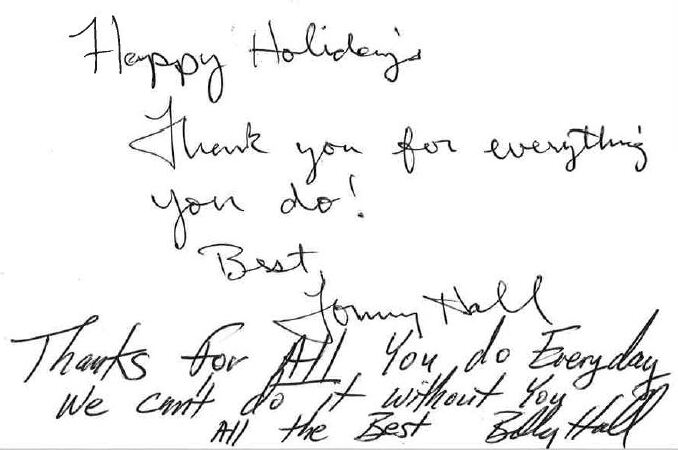 Happy Holidays
Thank you for everything
you do!
Best,
Tommy Hall
Thanks for All You do Everyday
We can't do it without You
All the Best Billy Hall